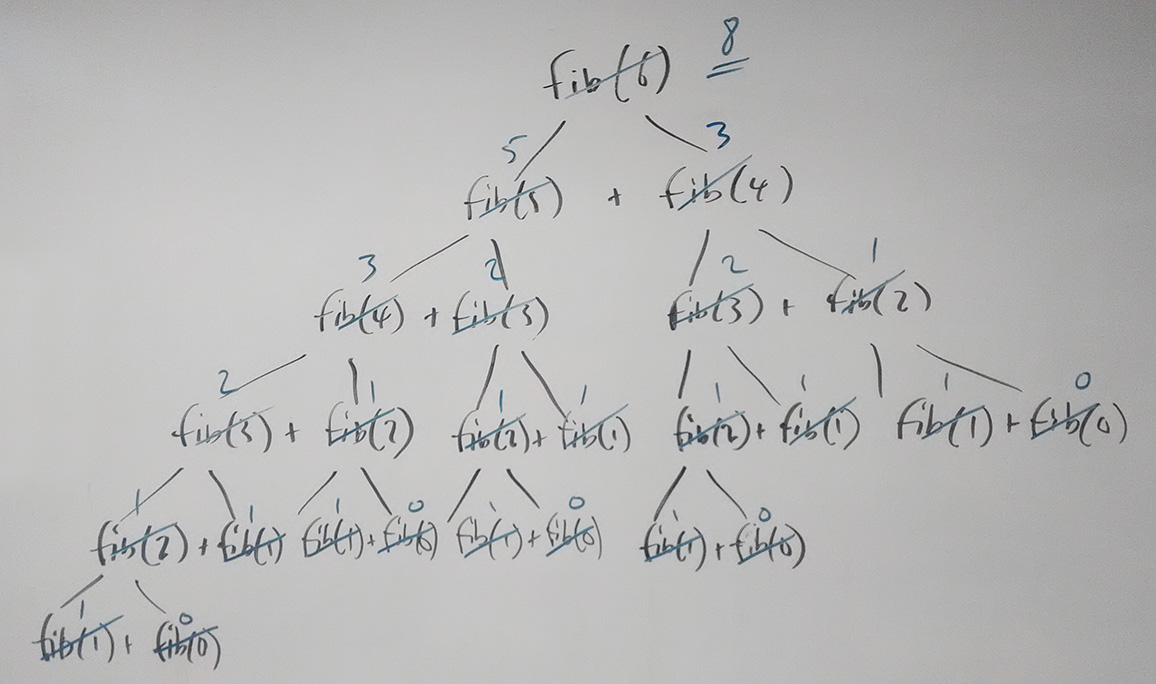 8
fib(6)
5 3
fib(5) + fib(4)
3 2 2 1
fib(4) + fib(3) fib(3) + fib(2)
2 1 1 1 1 1 1 0
fib(3) + fib(2) fib(2) + fib(1) fib(2) + fib(1) fib(1) + fib(0)
1 1 1 0 1 0 1 0
fib(2) + fib(1) fib(1) + fib(0) fib(1) + fib(0) fib(1) + fib(0)
1 0
fib(1) + fib(0)